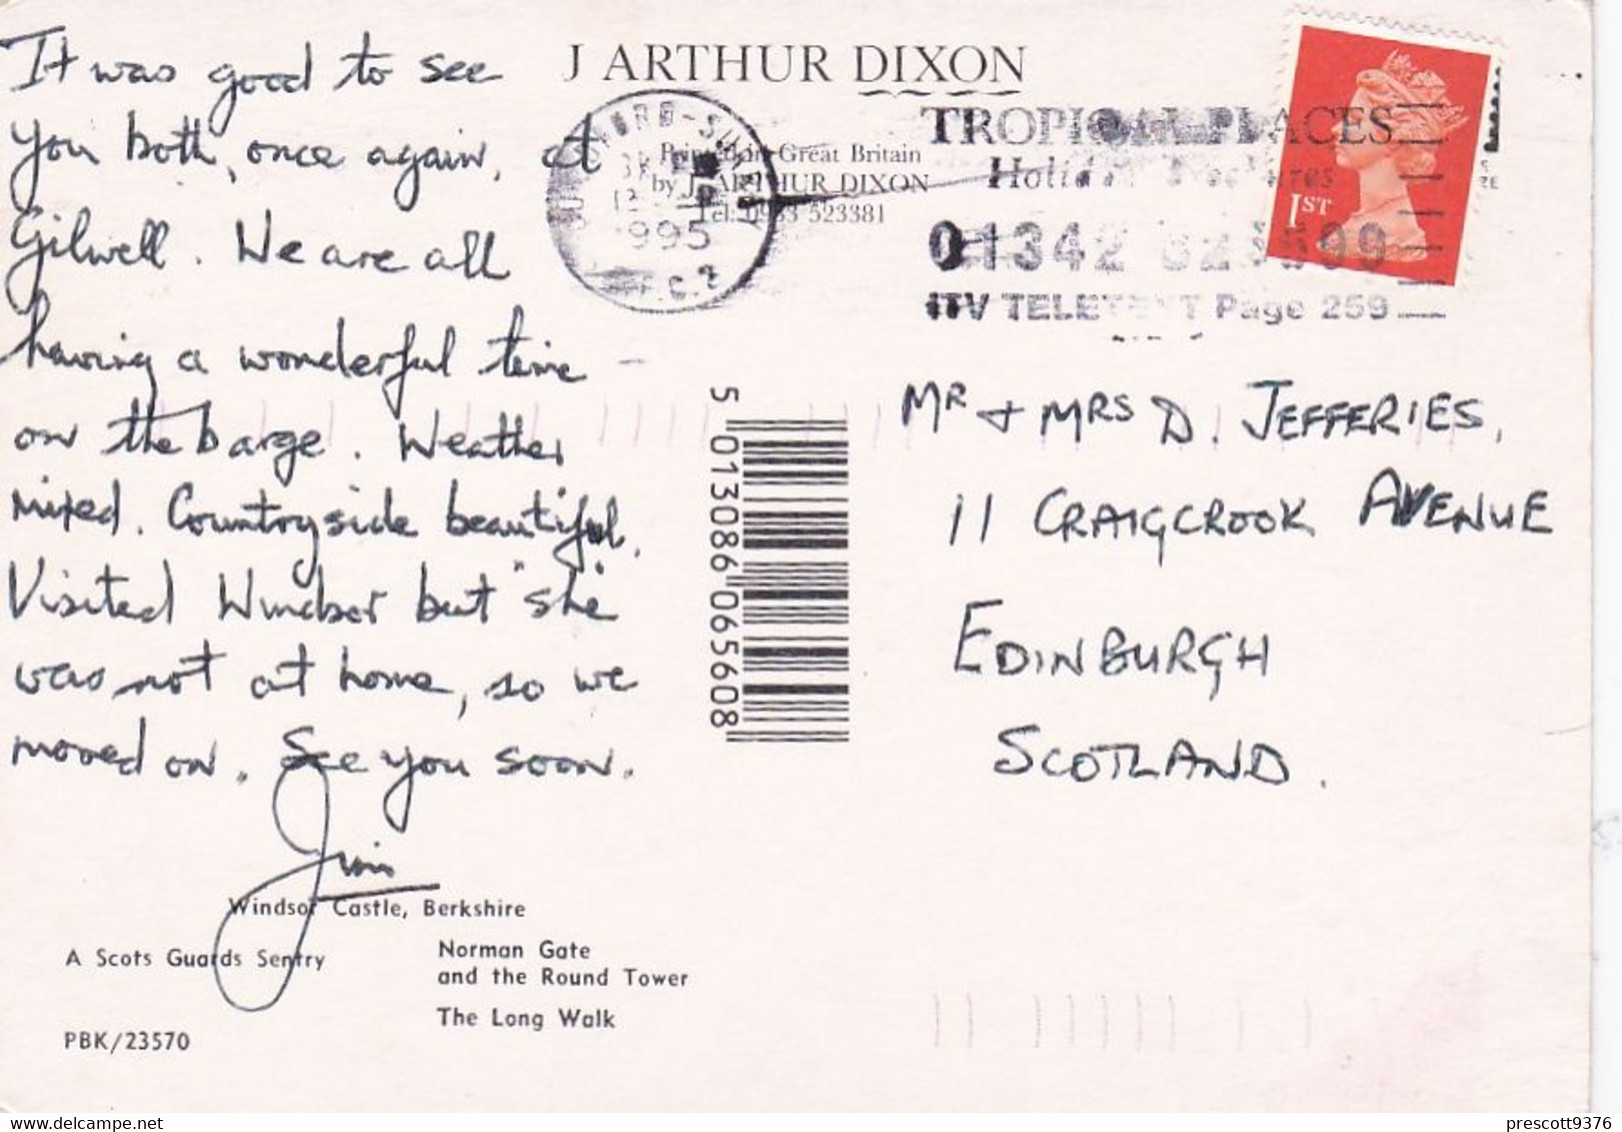 It was good to see
you both, once again, at
Gilwell. We are all
having a wonderful time
on the barge. Weather
mixed. Countryside beautiful.
Visited Windsor but "she"
was not at home, so we
moved on. See you soon.
Jim
Windsor Castle, Berkshire
A Scots Guards Sentry
Norman Gate
and the Round Tower
The Long Walk
PBK/23570
J ARTHUR DIXON
Printed in Great Britain
by J. ARTHUR DIXON
Tel: 0983 523381
1995
TROPICAL PLACES
01342
ITV TELETEXT Page 259
1ST
5 013086 065608
MR + MRS D. JEFFERIES,
11 CRAIGCROOK AVENUE
EDINBURGH
SCOTLAND.
https://www.delcampe.net
prescott9376